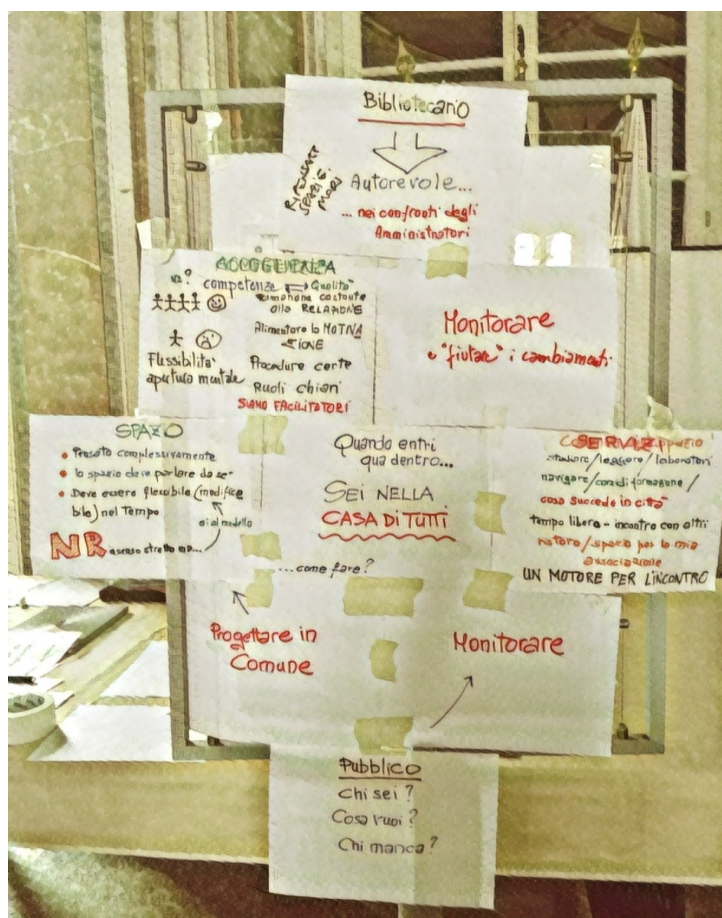 Bibliotecario
RIPENSARE
SPAZI E
MODI
Autorevole...
... nei confronti degli
Amministratori
ACCOGLIENZA
competenze ⇒ Qualità
costante
alla RELAZIONE
Alimentare la MOTIVA
ZIONE
Flessibilità
apertura mentale
Procedure certe
Ruoli chiari
SIAMO FACILITATORI
Monitorare
e "fiutare" i cambiamenti
SPAZIO
• Pensato complessivamente
• lo spazio deve parlare da sé
• Deve essere flessibile (modifica
bile) nel Tempo
al modello
NR
Quando entri
qua dentro...
SEI NELLA
CASA DI TUTTI
...come fare?
SERVIZI
studiare/leggere/laboratori
navigare/corsi di formazione/
cosa succede in città
tempo libero - incontro con altri
/spazio per la mia
associazione
UN MOTORE PER L'INCONTRO
Progettare in
Comune
Monitorare
Pubblico
Chi sei?
Cosa vuoi?
Chi manca?